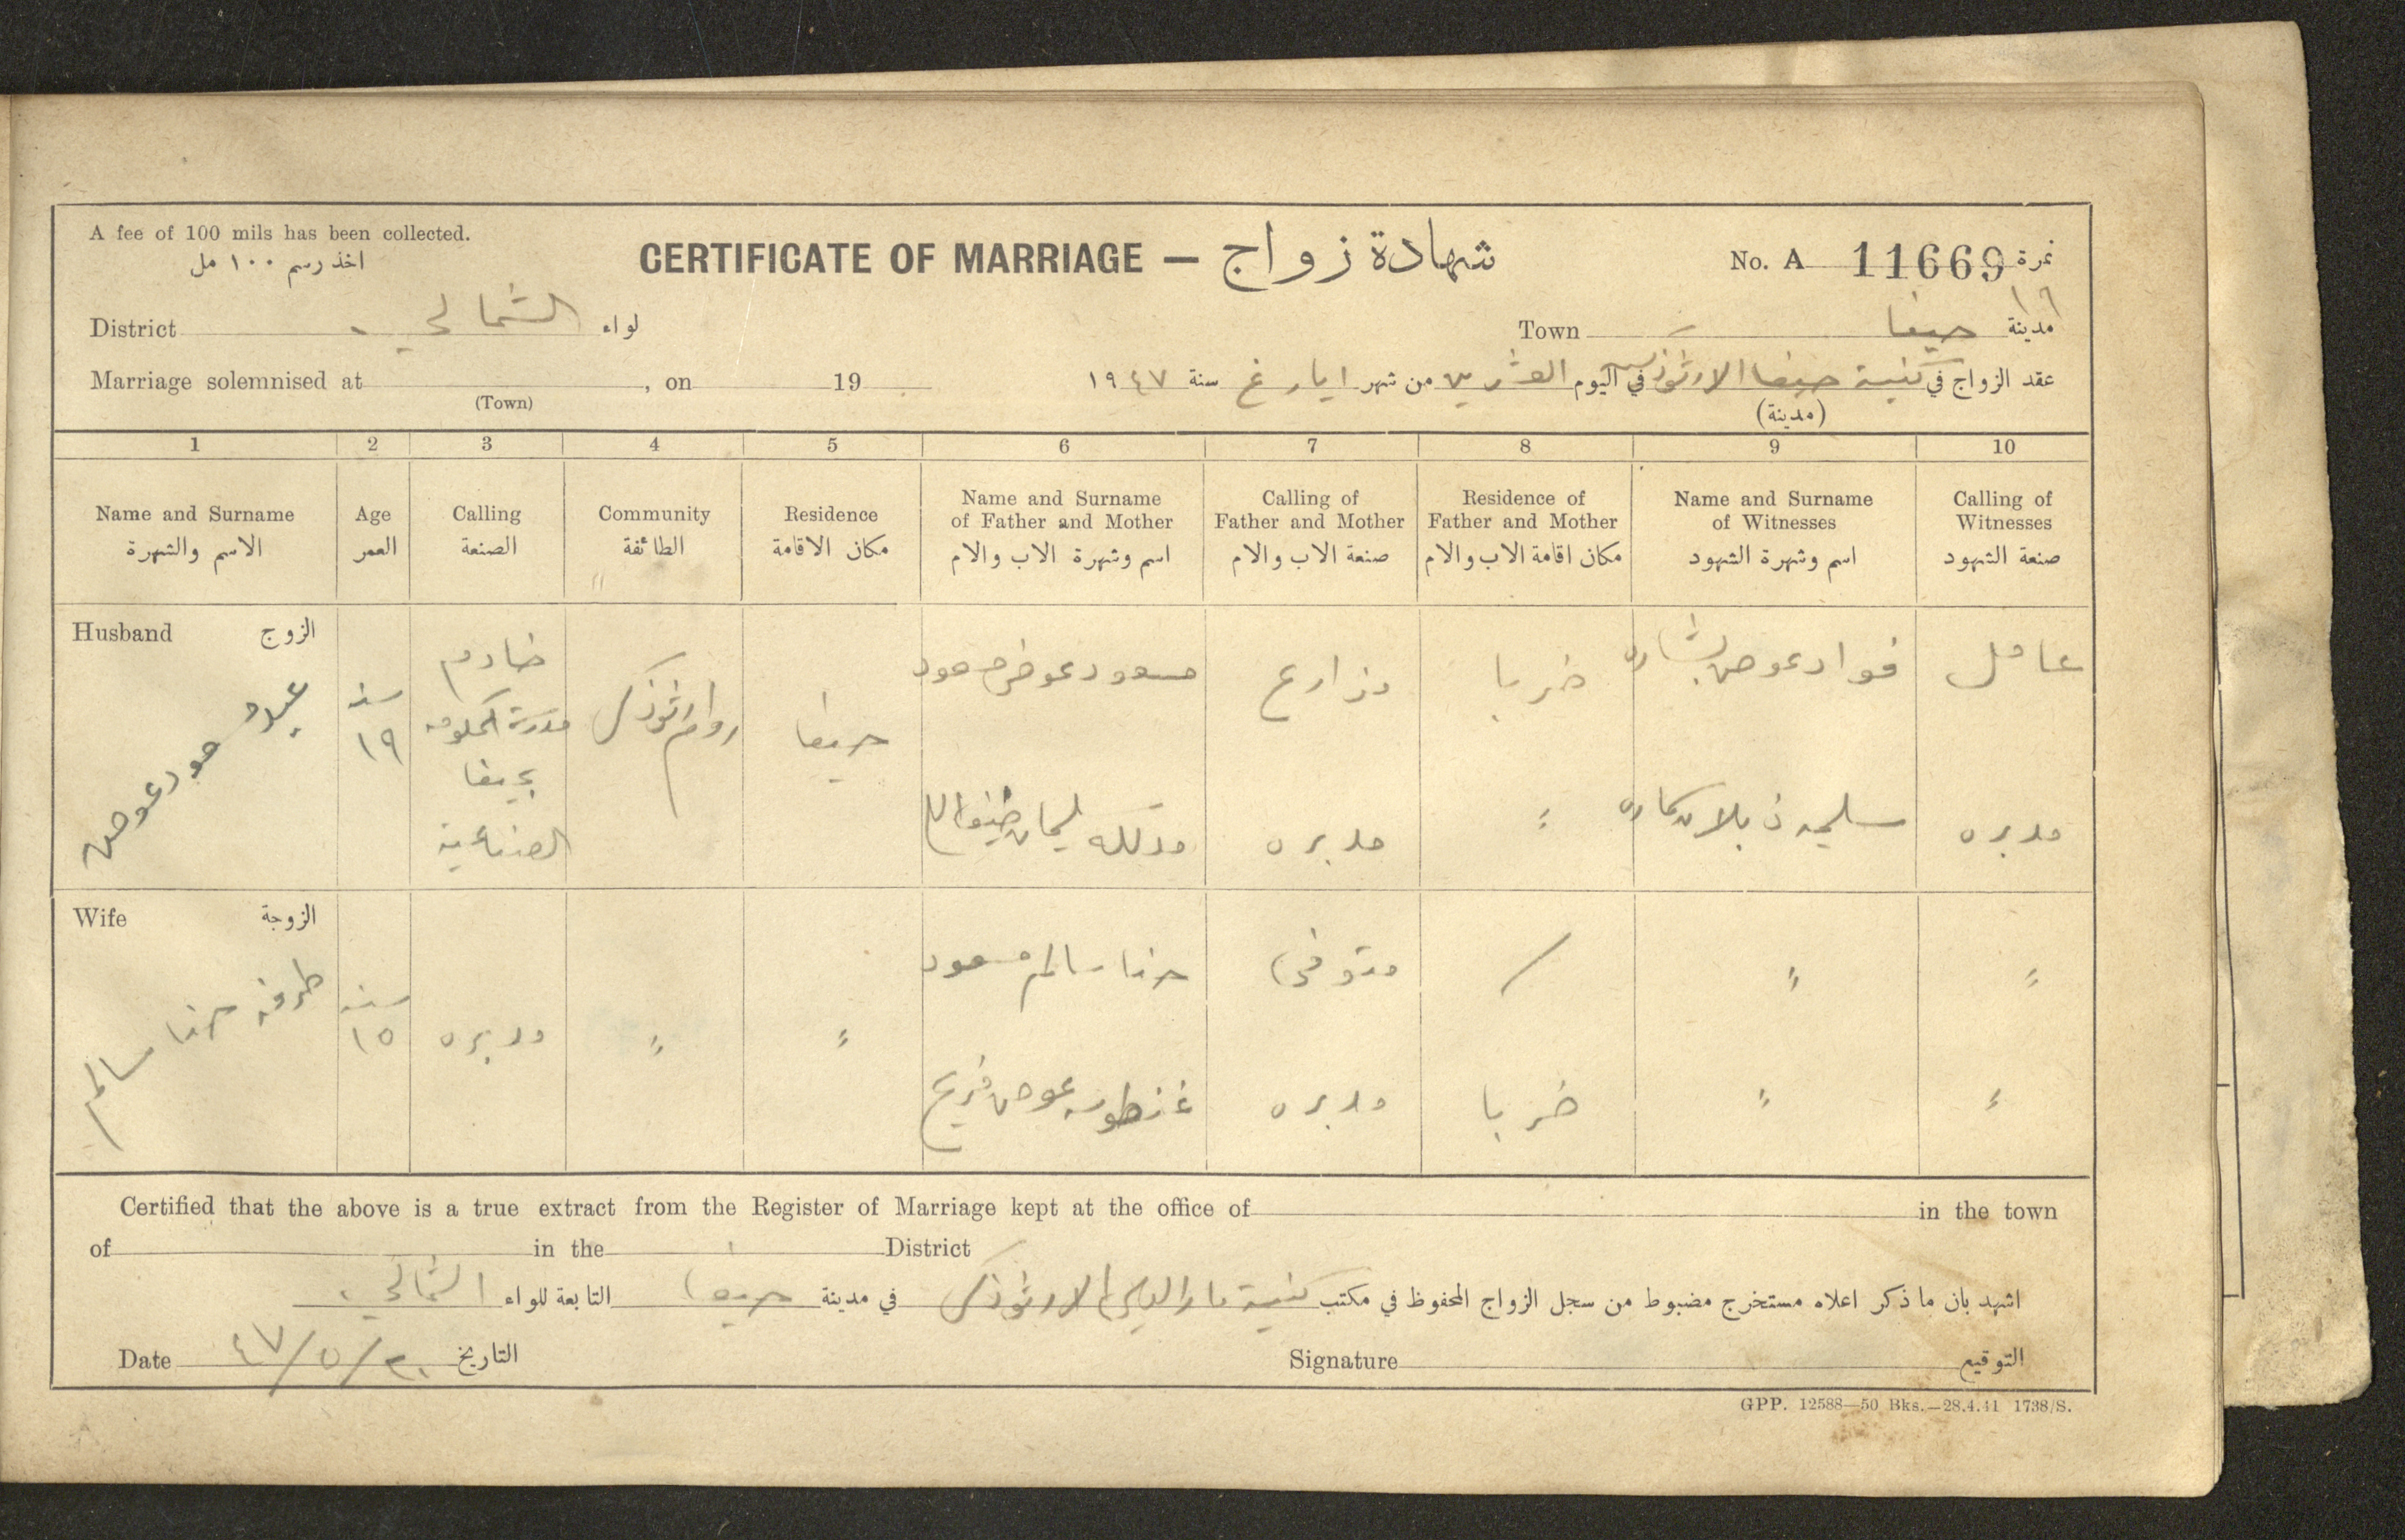 A fee of 100 mils has been collected.
اخذ رسم ١٠٠ مل
CERTIFICATE OF MARRIAGE — شهادة زواج
No. A 11669 نمرة
١٦
District الشمالي لواء
Town حيفا مدينة
Marriage solemnised at , on 19
(Town)
عقد الزواج في كنيسة حيفا الارثوذكسية في اليوم العشرين من شهر ايار غ سنة ١٩٤٧
(مدينة)
1 2 3 4 5 6 7 8 9 10
Name and Surname
الاسم والشهرة
Age
العمر
Calling
الصنعة
Community
الطائفة
Residence
مكان الاقامة
Name and Surname
of Father and Mother
اسم وشهرة الاب والام
Calling of
Father and Mother
صنعة الاب والام
Residence of
Father and Mother
مكان اقامة الاب والام
Name and Surname
of Witnesses
اسم وشهرة الشهود
Calling of
Witnesses
صنعة الشهود
Husband الزوج
عوض
سنه
١٩
خادم
مدرسة الحكومة
بحيفا
الصناعية
روم ارثوذكس
حيفا
مسعود عوض مسعود
مزارع
خربا
فواد عوض بشاره
عامل
سليمان
مدبره
"
مدبره
Wife الزوجة
طرفه حنا سالم
سنه
١٥
مدبره
"
"
حنا سالم مسعود
متوفى
/
"
"
عوض فريج
مدبره
خربا
"
"
Certified that the above is a true extract from the Register of Marriage kept at the office of in the town
of in the District
اشهد بان ما ذكر اعلاه مستخرج مضبوط من سجل الزواج المحفوظ في مكتب كنيسة مار الياس الارثوذكس في مدينة حيفا التابعة للواء الشمالي
Date ٢٠/٥/٤٧ التاريخ
Signature التوقيع
GPP. 12588—50 Bks.—28.4.41 1738/S.